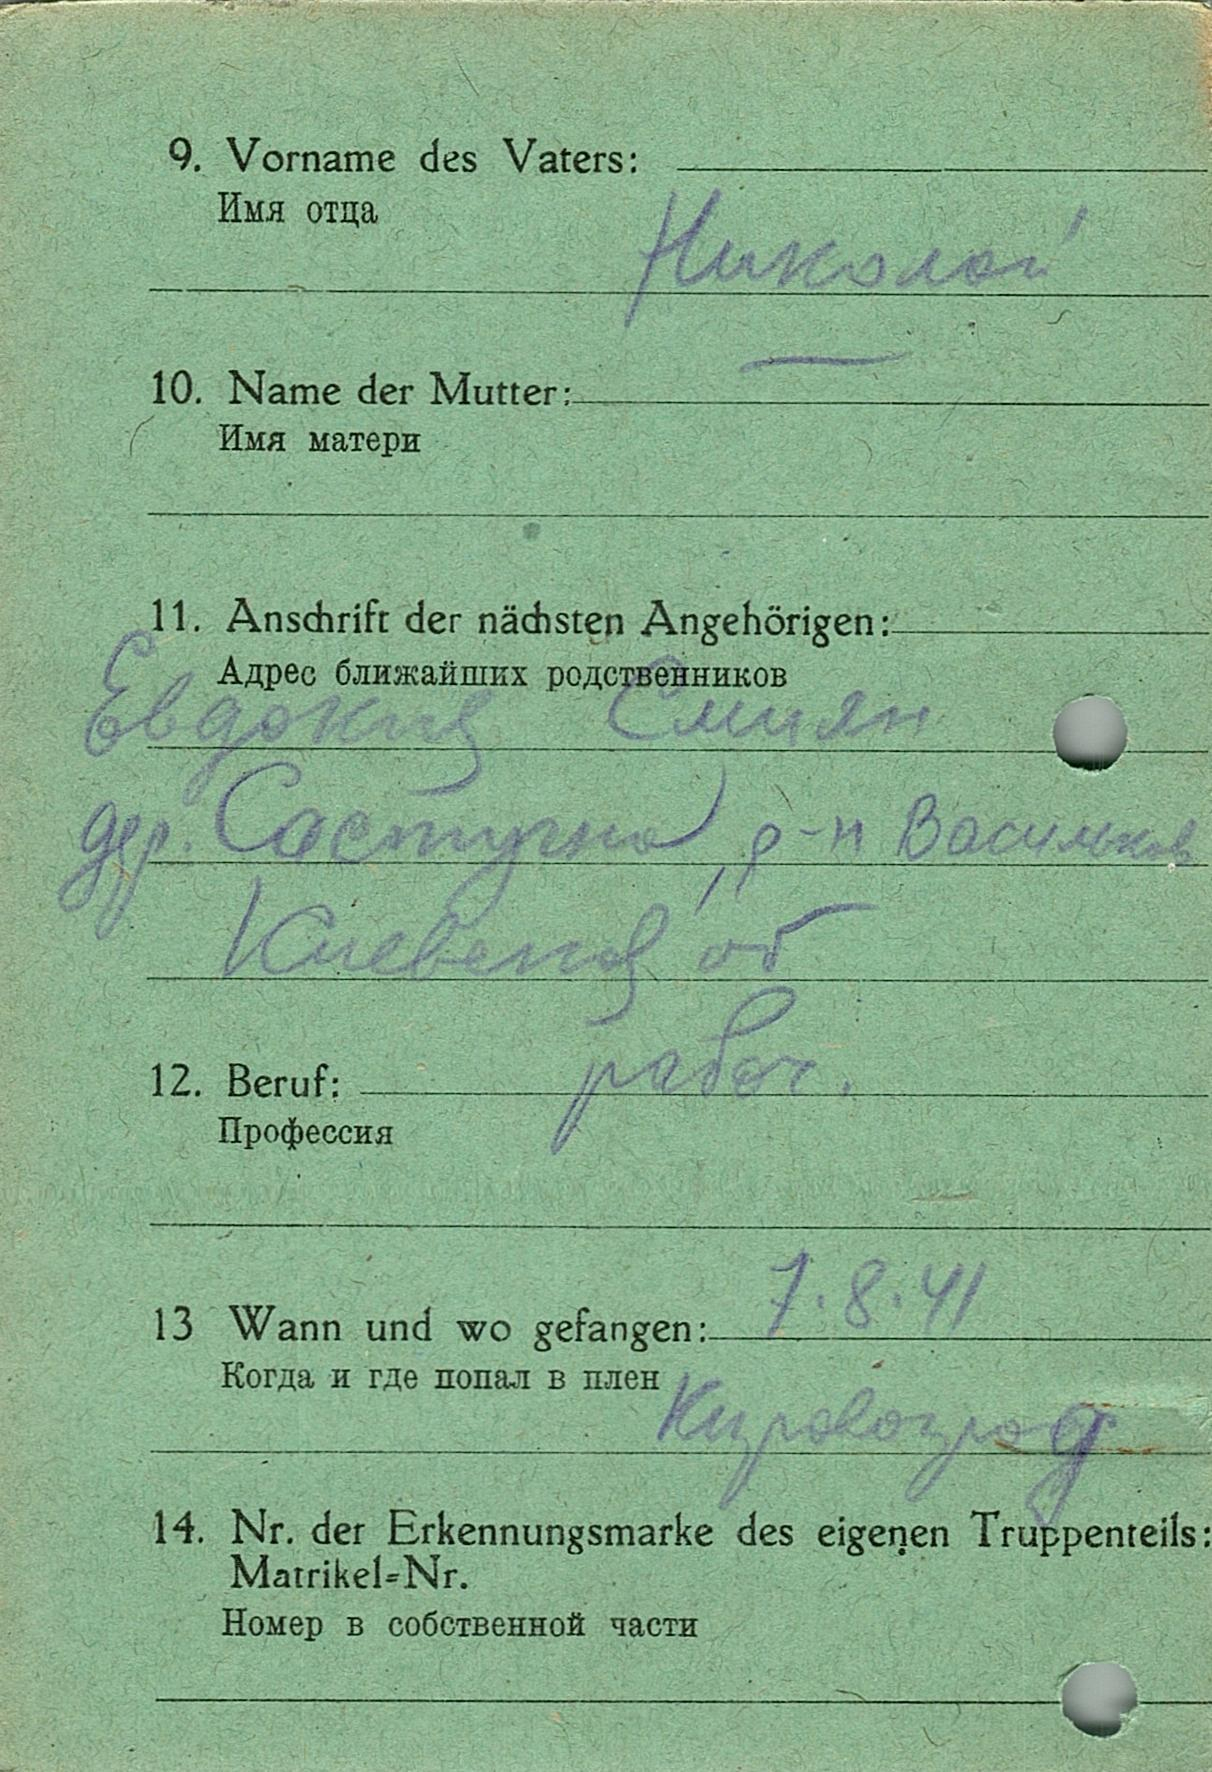 9. Vorname des Vaters:
Имя отца
Николай
10. Name der Mutter: —
Имя матери
11. Anschrift der nächsten Angehörigen:
Адрес ближайших родственников
Евдокия Смиян
дер. , р-н Васильков
Киевская об
12. Beruf: рабоч.
Профессия
13 Wann und wo gefangen: 7.8.41
Когда и где попал в плен
Кировоград
14. Nr. der Erkennungsmarke des eigenen Truppenteils:
Matrikel-Nr.
Номер в собственной части